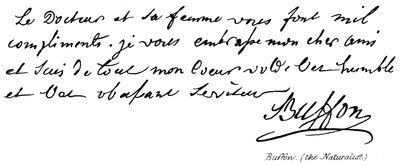 Le Docteur et sa femme vous font mil
compliments. je vous embrasse mon cher ami
et suis de tout mon Coeur votre humble
et obeissant Serviteur
Buffon
Buffon. (the Naturalist)